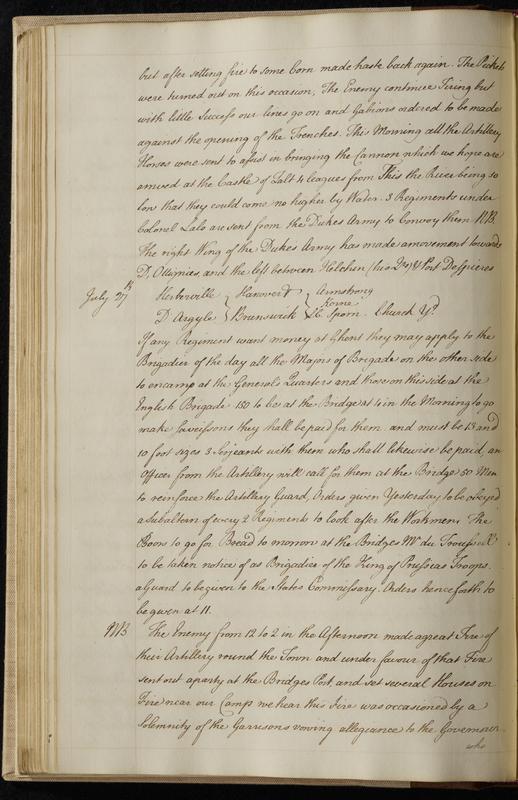 but after setting fire to some Corn made haste back again. The Pickets
were turned out on this occasion, The Enemy continue Firing but
with little Success our lines go on and Gabions ordered to be made
against the opening of the Trenches. This Morning all the Artillery
Horses were sent to assist in bringing the Cannon which we hope are
arrived at the Castle of Salt 4 leagues from This the River being so
low that they could come no higher by Water. 3 Regiments under
Colonel Lalo are sent from the Dukes Army to Convoy them NB.
The right Wing of the Dukes Army has made a movement towards
D'Ottignies, and the left between Helchen (his Qrs) & Pont DeSpieres
July 27th Herbeville Hanover Armstrong
Horne
D. Argyle Brunswick H. Sporn. Church Yd
If any Regiment want money at Ghent they may apply to the
Brigadier of the day all the Majors of Brigade on the other side
to encamp at the Generals Quarters and those on this side at the
English Brigade 150 to be at the Bridge at 4 in the Morning to go
make Sauceissons they shall be paid for them. and must be 13 and
10 foot sizes 3 Serjeants with them who shall likewise be paid, an
Officer from the Artillery will call for them at the Bridge 50 Men
to reinforce the Artillery Guard, Orders given Yesterday to be obeyed
a Subaltern of every 2 Regiments to look after the Workmen. The
Boors to go for Bread to morrow at the Bridges Mr du
to be taken notice of as Brigadier of the King of Prussias Troops.
a Guard to be given to the States Commissary. Orders henceforth to
be given at 11.
NB The Enemy from 12 to 2 in the Afternoon made a great Fire of
their Artillery round the Town and under favour of that Fire
sent out a party at the Bridges Post, and set several Houses on
Fire near our Camp we hear this Fire was occasioned by a
Solemnity of the Garrisons vowing allegiance to the Governour
who